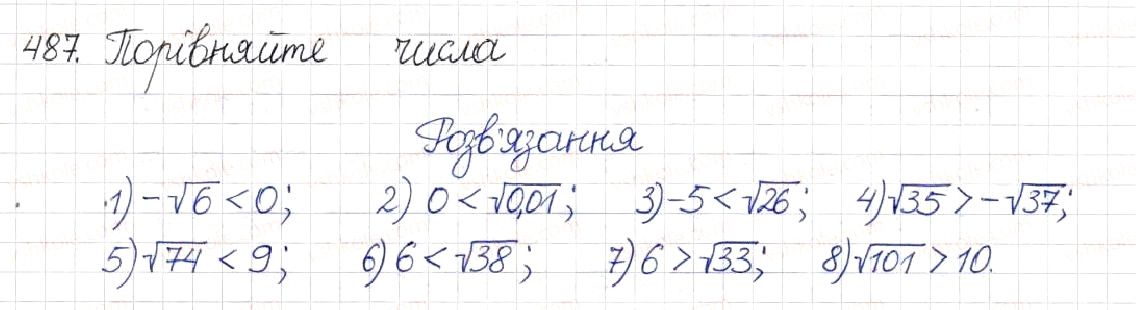 487. Порівняйте числа
Розв'язання
1) -√6 < 0; 2) 0 < √0,01; 3) -5 < √26; 4) √35 > -√37;
5) √74 < 9; 6) 6 < √38; 7) 6 > √33; 8) √101 > 10.